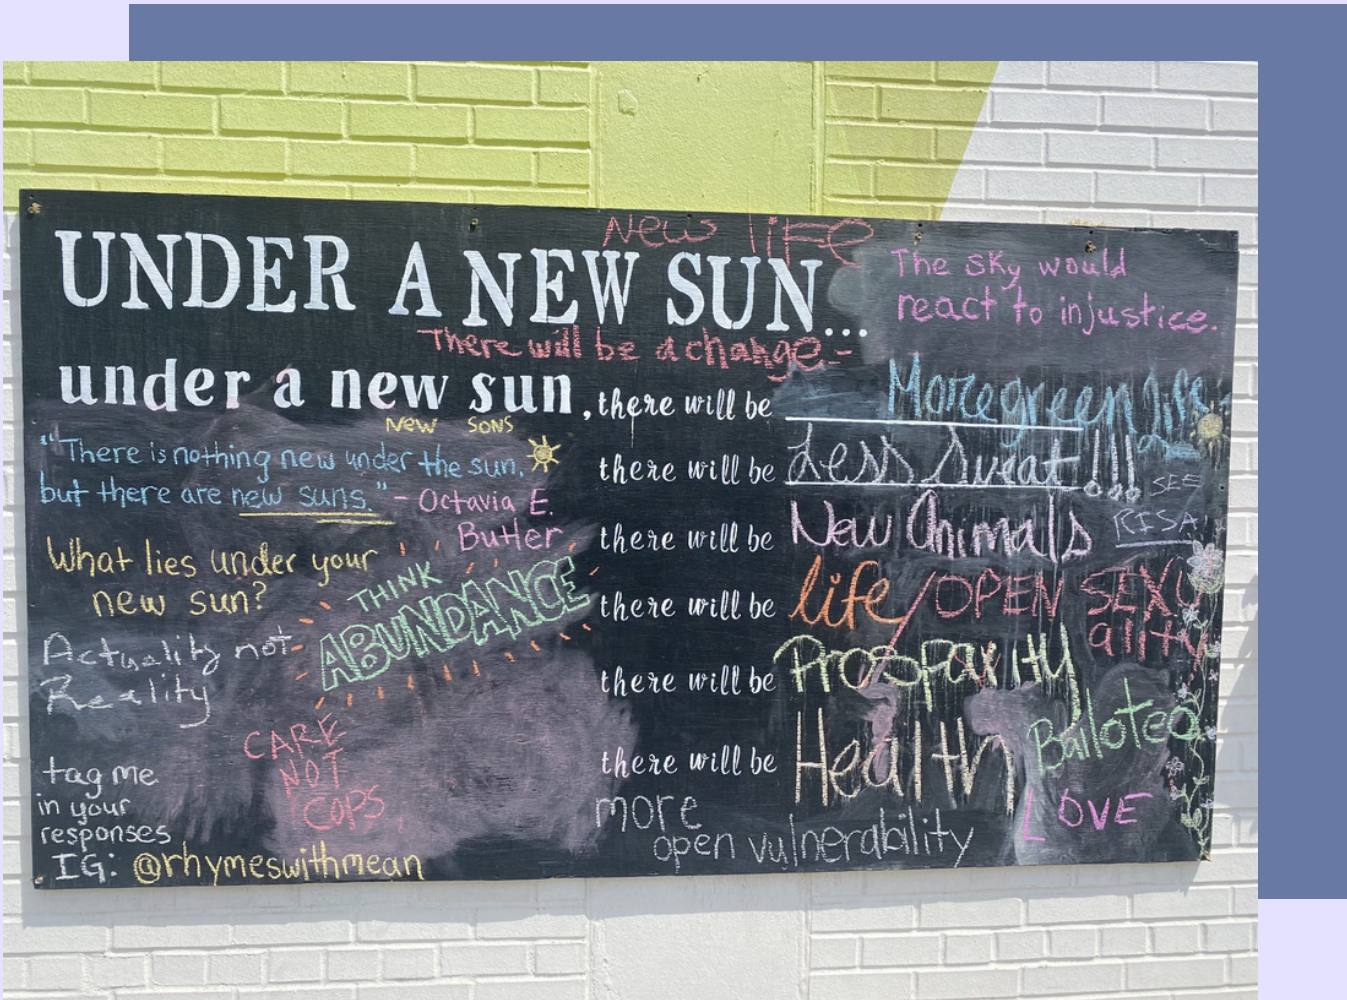 New life
UNDER A NEW SUN...
The sky would
react to injustice.
There will be a change -
under a new sun, there will be More green life
NEW SONS
"There is nothing new under the sun,
but there are new suns." - Octavia E.
Butler
there will be Less Sweat!!!
SEE
RISA
there will be New Animals
What lies under your
new sun?
THINK
ABUNDANCE
there will be life/OPEN SEXU
ality
Actuality not
Reality
there will be Prosparity
CARE
NOT
COPS
there will be Health
LOVE
tag me
in your
responses
IG: @rhymeswithmean
more
open vulnerability